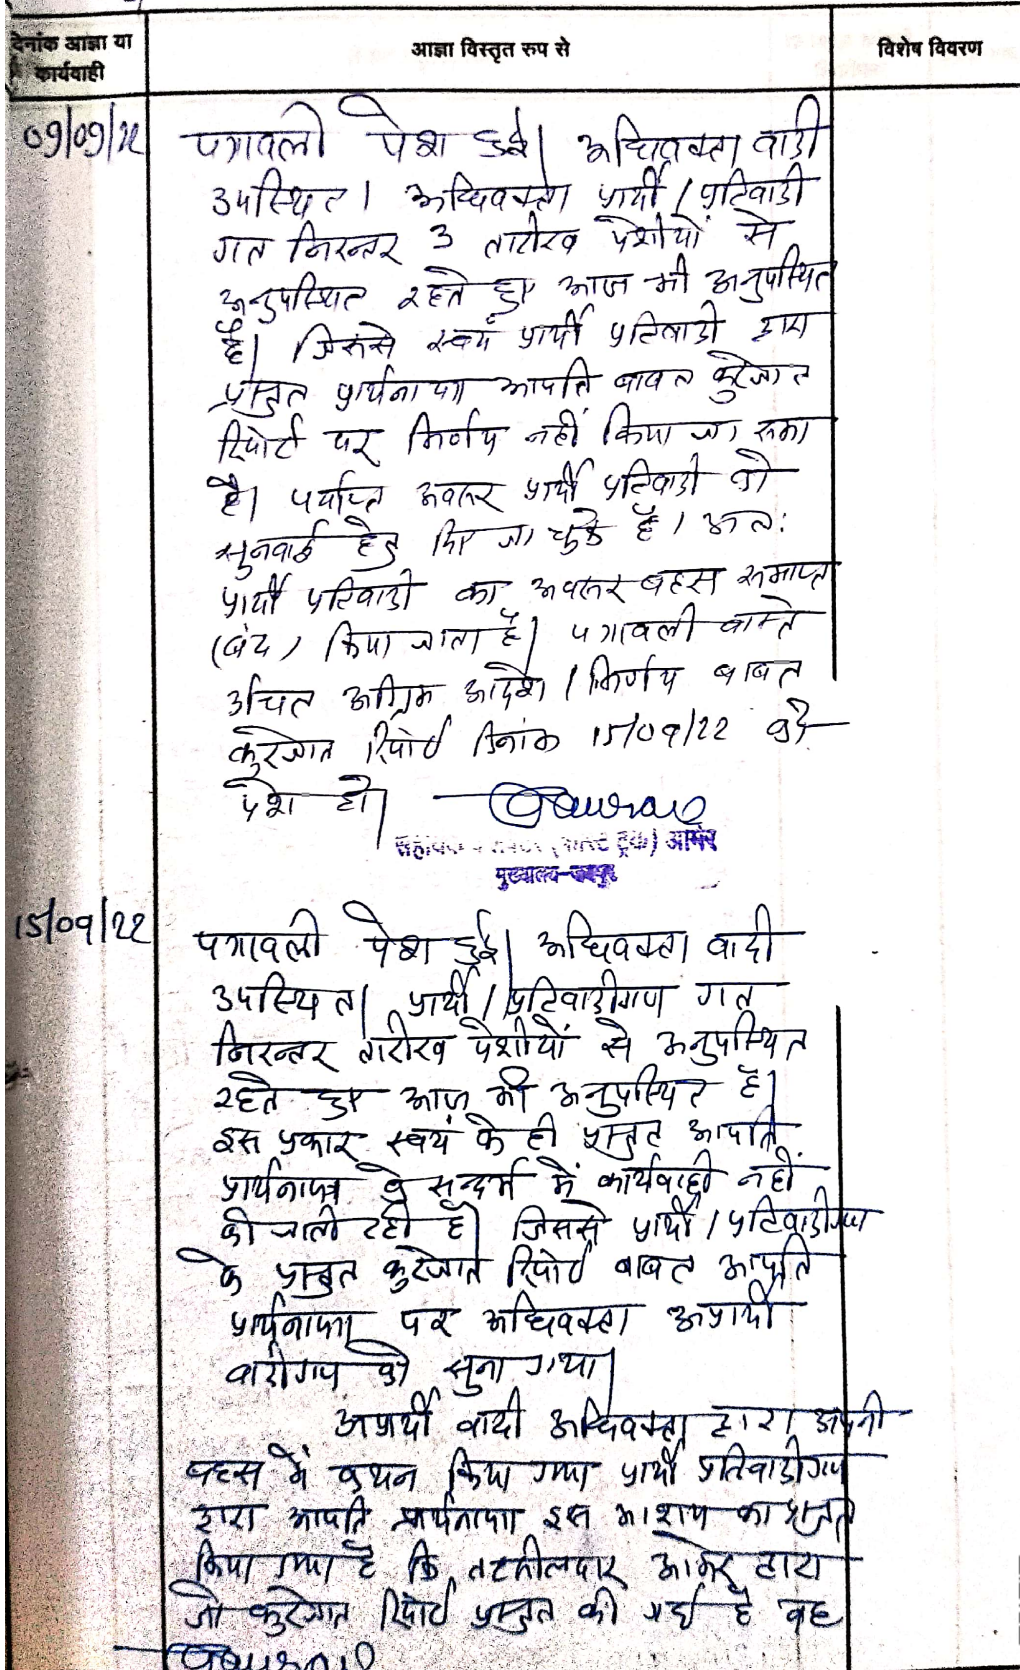 दिनांक आज्ञा या
कार्यवाही
आज्ञा विस्तृत रुप से
विशेष विवरण
09/09/22
पत्रावली पेश हुई। अधिवक्ता वादी
उपस्थित। अधिवक्ता प्रार्थी / प्रतिवादी
गत निरन्तर 3 तारीख पेशीयों से
अनुपस्थित रहते हुए आज भी अनुपस्थित
है। जिससे स्वयं प्रार्थी प्रतिवादी द्वारा
प्रस्तुत प्रार्थनापत्र आपत्ति बाबत कुरेजात
रिपोर्ट पर निर्णय नहीं किया जा सका
है। पर्याप्त अवसर प्रार्थी प्रतिवादी को
सुनवाई हेतु दिए जा चुके हैं। अतः
प्रार्थी प्रतिवादी का अवसर बहस समाप्त
(बंद) किया जाता है। पत्रावली वास्ते
उचित अग्रिम आदेश / निर्णय बाबत
कुरेजात रिपोर्ट दिनांक 15/09/22 को
पेश हो।
(फास्ट ट्रेक) आमेर
मुख्यालय-जयपुर
15/09/22
पत्रावली पेश हुई। अधिवक्ता वादी
उपस्थित। प्रार्थी / प्रतिवादीगण गत
निरन्तर तारीख पेशीयों से अनुपस्थित
रहते हुए आज भी अनुपस्थित है।
इस प्रकार स्वयं के ही प्रस्तुत आपत्ति
प्रार्थनापत्र के सन्दर्भ में कार्यवाही नहीं
की जाती रही है। जिससे प्रार्थी / प्रतिवादीगण
के प्रस्तुत कुरेजात रिपोर्ट बाबत आपत्ति
प्रार्थनापत्र पर अधिवक्ता अप्रार्थी
वादीगण को सुना गया।
अप्रार्थी वादी अधिवक्ता द्वारा अपनी
बहस में कथन किया गया प्रार्थी प्रतिवादीगण
द्वारा आपत्ति प्रार्थनापत्र इस आशय का प्रस्तुत
किया गया है कि तहसीलदार आमेर द्वारा
जो कुरेजात रिपोर्ट प्रस्तुत की गई है वह